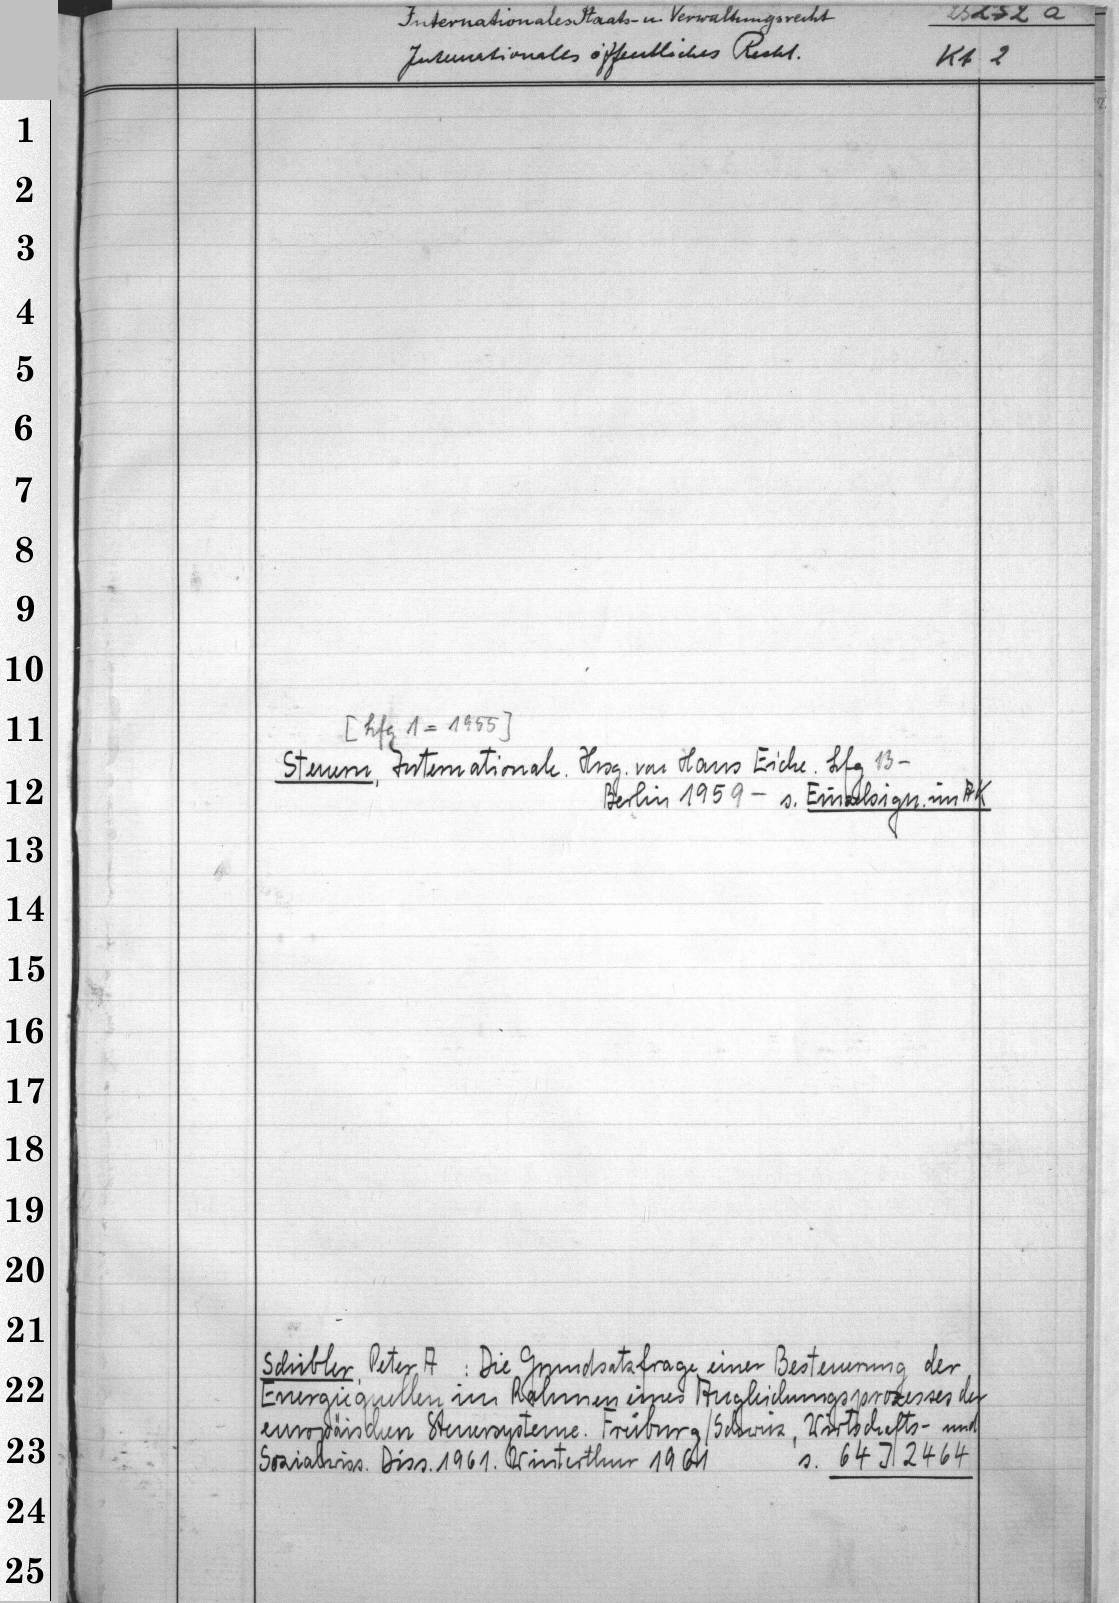 Internationales Staats- u. Verwaltungsrecht
Internationales öffentliches Recht. Kt 2
1
2
3
4
5
6
7
8
9
10
11
[Lfg 1 = 1955]
Steuern, Internationale. Hrsg. von Hans Eiche. Lfg 13-
12
Berlin 1959 - s. Einzelsign. im AK
13
14
15
16
17
18
19
20
21
Schibler, Peter A : Die Grundsatzfrage einer Besteuerung der
22
Energiequellen im Rahmen eines Angleichungsprozesses der
europäischen Steuersysteme. Freiburg/Schweiz, Wirtschafts- und
23
Sozialwiss. Diss. 1961. Winterthur 1961 s. 64 J 2464
24
25